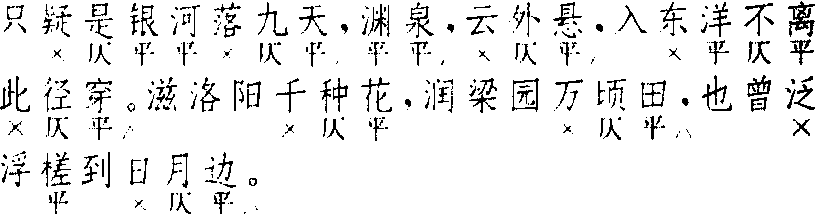 只疑是银河落九天,渊泉,云外悬,入东洋不离
× 仄 平 平 × 仄 平 平 平 × 仄 平 × 平 仄 平
此径穿。滋洛阳千种花,润梁园万顷田,也曾泛
× 仄 平 × 仄 平 × 仄 平 ×
浮槎到日月边。
平 × 仄 平